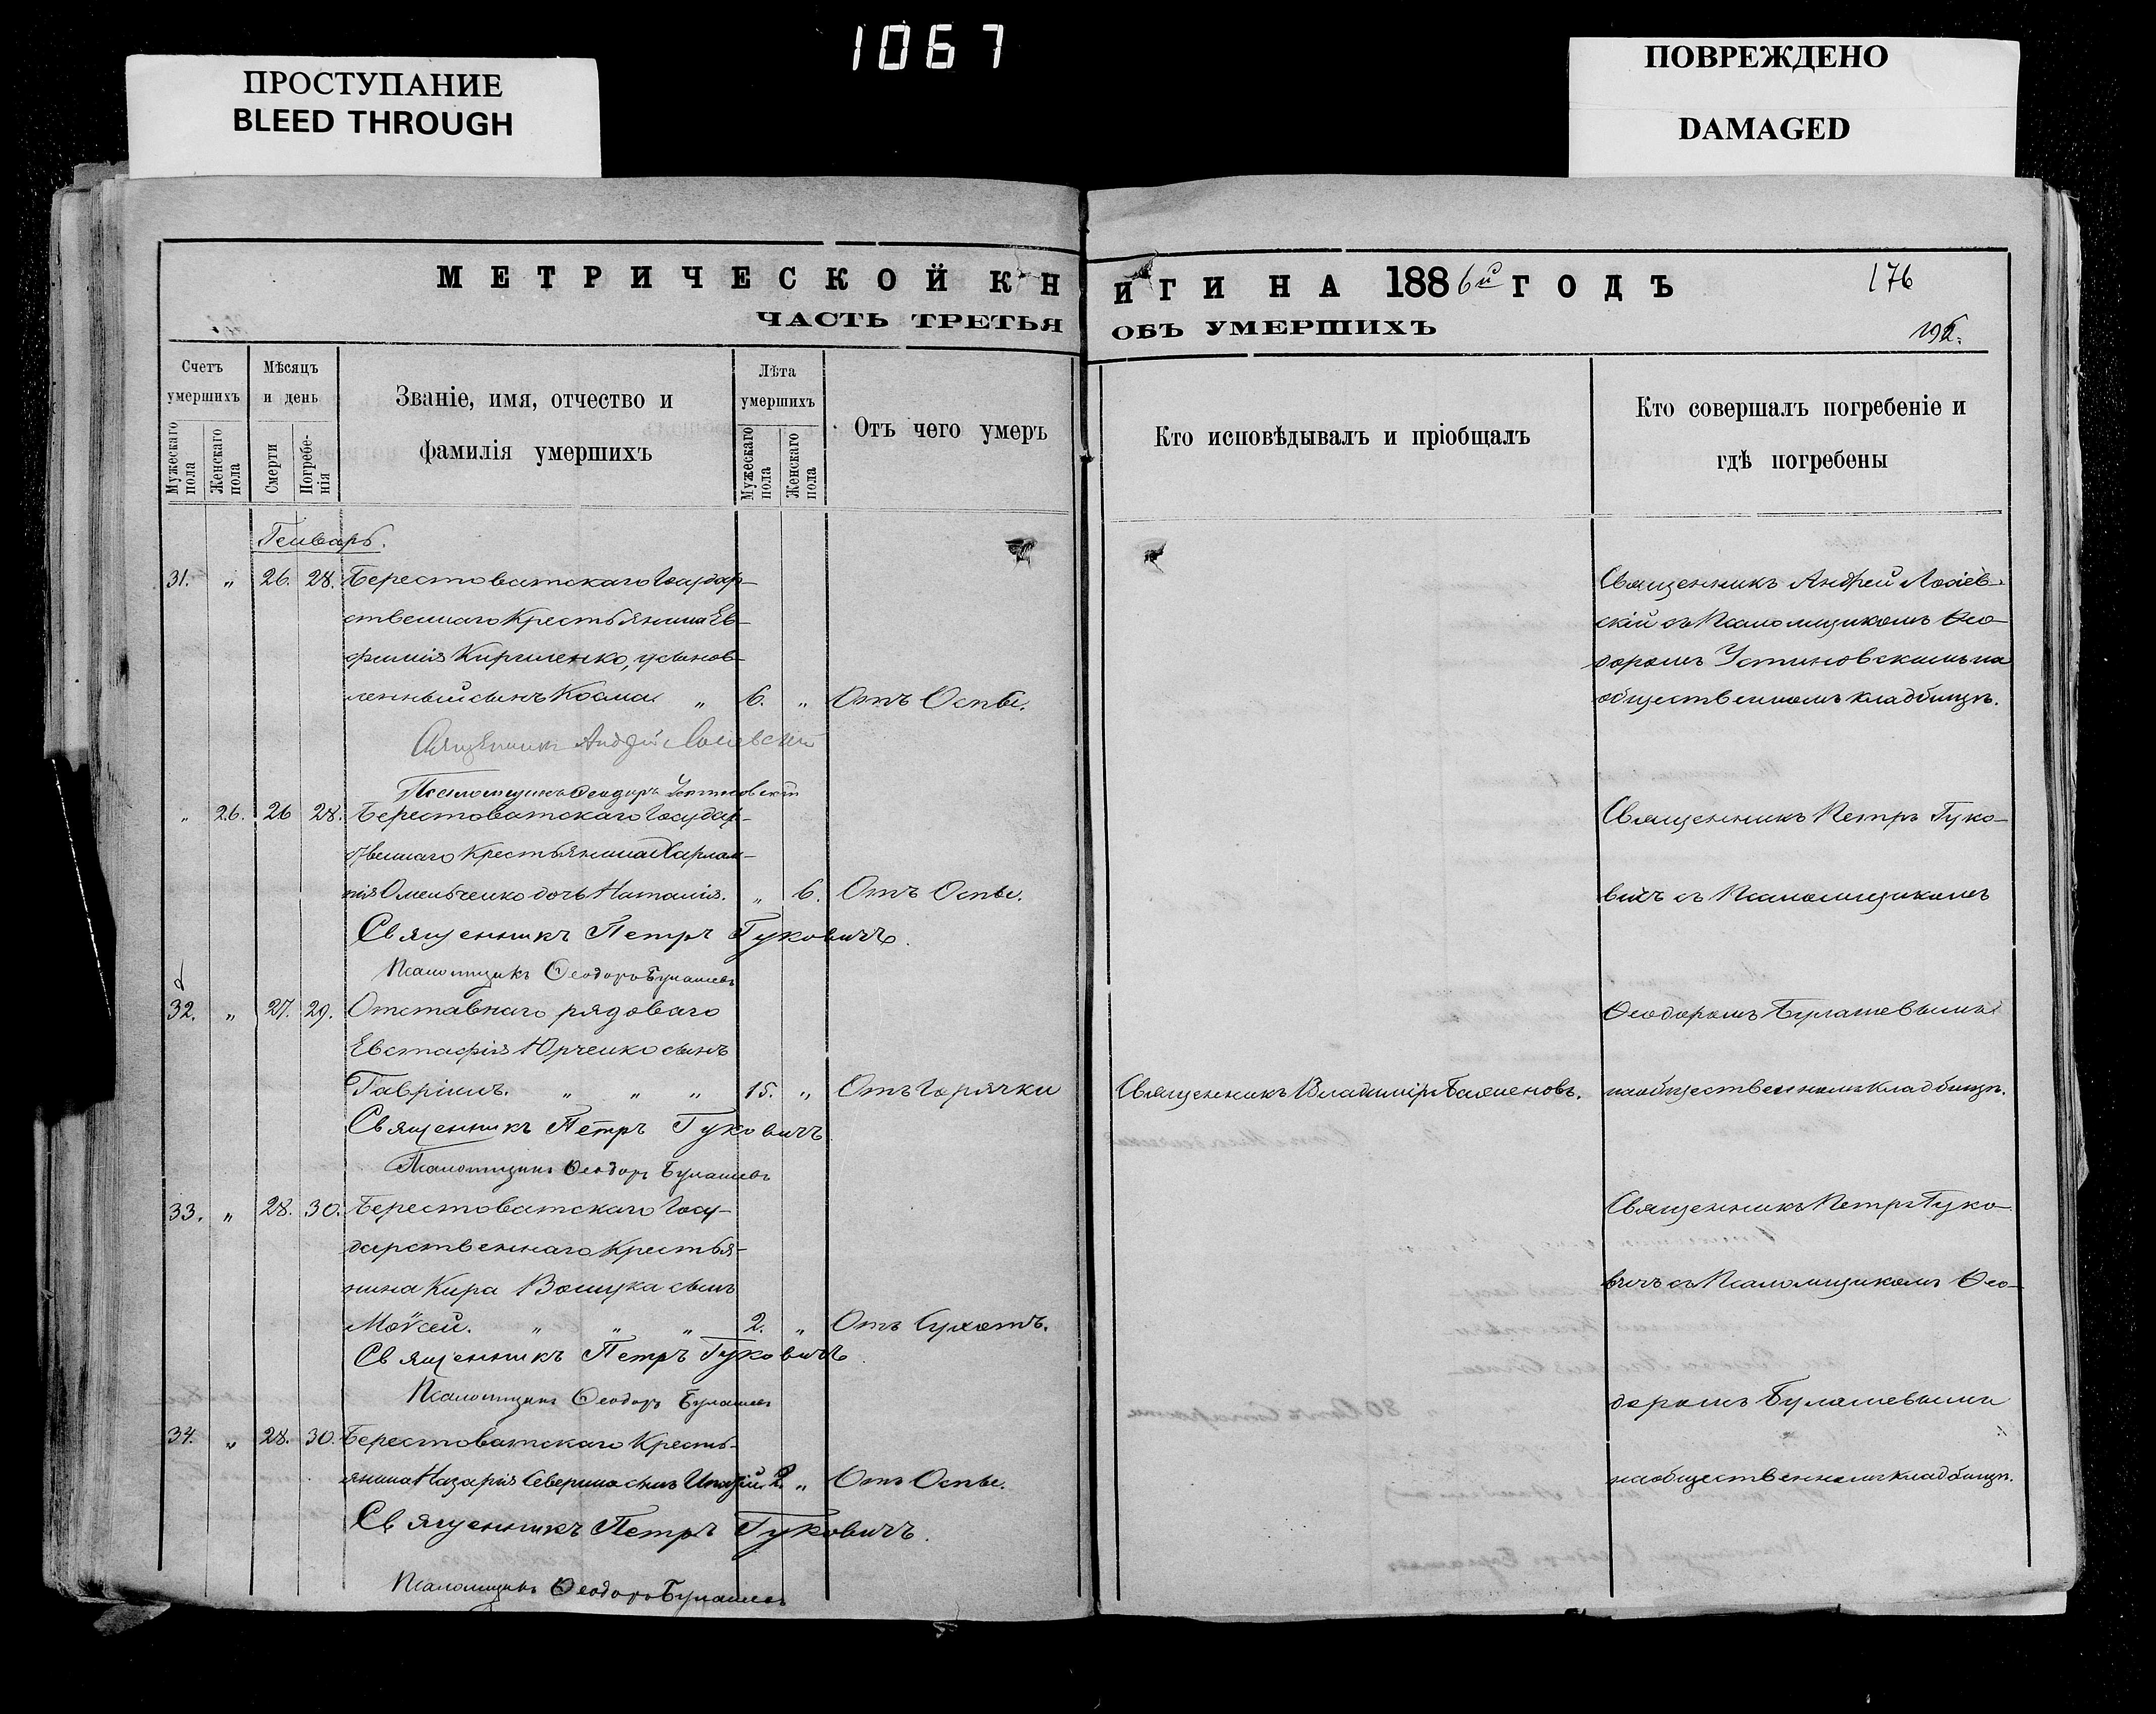 1067
ПРОСТУПАНИЕ
BLEED THROUGH
ПОВРЕЖДЕНО
DAMAGED
МЕТРИЧЕСКОЙ КНИГИ НА 1886й ГОДЪ
176
ЧАСТЬ ТРЕТЬЯ ОБЪ УМЕРШИХЪ
Счетъ умершихъ
Мужескаго пола
Женскаго пола
Мѣсяцъ и день
Смерти
Погребенія
Званіе, имя, отчество и
фамилія умершихъ
Лѣта умершихъ
Мужескаго пола
Женскаго пола
Отъ чего умеръ
Кто исповѣдывалъ и пріобщалъ
Кто совершалъ погребеніе и
гдѣ погребены
Генварь.
31. „ 26. 28. Берестоватскаго Государ-
ственнаго Крестьянина Ев-
фимія Кириленко, усынов-
ленный сынъ Косма „ 6. „ Отъ Оспы.
Священникъ Андрей
Псаломщикъ Ѳеодоръ Устиновскій
Священникъ Андрей
скій съ Псаломщикомъ Ѳео-
доромъ Устиновскимъ на
общественномъ кладбищѣ.
„ 26. 26 28. Берестоватскаго Государ-
ственнаго Крестьянина Харлам-
пія Омельченко дочь Наталія. „ 6. Отъ Оспы.
Священникъ Петръ Гуковичъ.
Псаломщикъ Ѳеодоръ Булашевъ
Священникъ Петръ Гуко-
вичъ съ Псаломщикомъ
32. „ 27. 29. Отставнаго рядоваго
Евстафія Юрченко сынъ
Гавріилъ. „ „ „ 15. „ Отъ Горячки
Священникъ Владиміръ
Священникъ Петръ Гуковичъ
Псаломщикъ Ѳеодоръ Булашевъ
Ѳеодоромъ Булашевымъ
на общественномъ кладбищѣ.
33. „ 28. 30. Берестоватскаго Госу-
дарственнаго Крестья-
нина Кира сынъ
Моѵсей. „ „ „ 2. „ Отъ Сухотъ.
Священникъ Петръ Гуковичъ
Псаломщикъ Ѳеодоръ Булашевъ
Священникъ Петръ Гуко-
вичъ съ Псаломщикомъ Ѳео-
доромъ Булашевымъ
34. „ 28. 30. Берестоватскаго Кресть-
янина Назарія Северина сынъ 2. „ Отъ Оспы.
Священникъ Петръ Гуковичъ.
Псаломщикъ Ѳеодоръ Булашевъ
на общественномъ кладбищѣ.